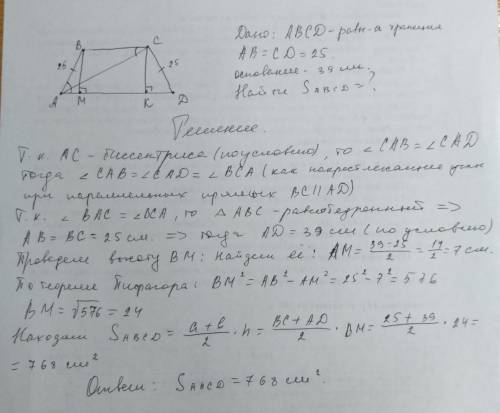 Дано: ABCD-равн-я трапеция
AB=CD=25
основание - 39 см.
Найти SABCD=?
B C
25 25
A M K D
Решение.
Т. к. AC - биссектриса (по условию), то ∠CAB=∠CAD
тогда ∠CAB=∠CAD=∠BCA (как накрест лежащие углы
при параллельных прямых BC||AD)
Т.к. ∠BAC=∠BCA, то △ABC-равнобедренный =>
AB=BC=25см. => тогда AD=39см (по условию)
Проведем высоту BM: найдем её: AM=(39-25)/2=14/2=7см.
По теореме Пифагора: BM²=AB²-AM²=25²-7²=576
BM=√576=24
Находим SABCD=(a+b)/2·h=(BC+AD)/2·BM=(25+39)/2·24=
=768 см²
Ответ: SABCD=768 см².